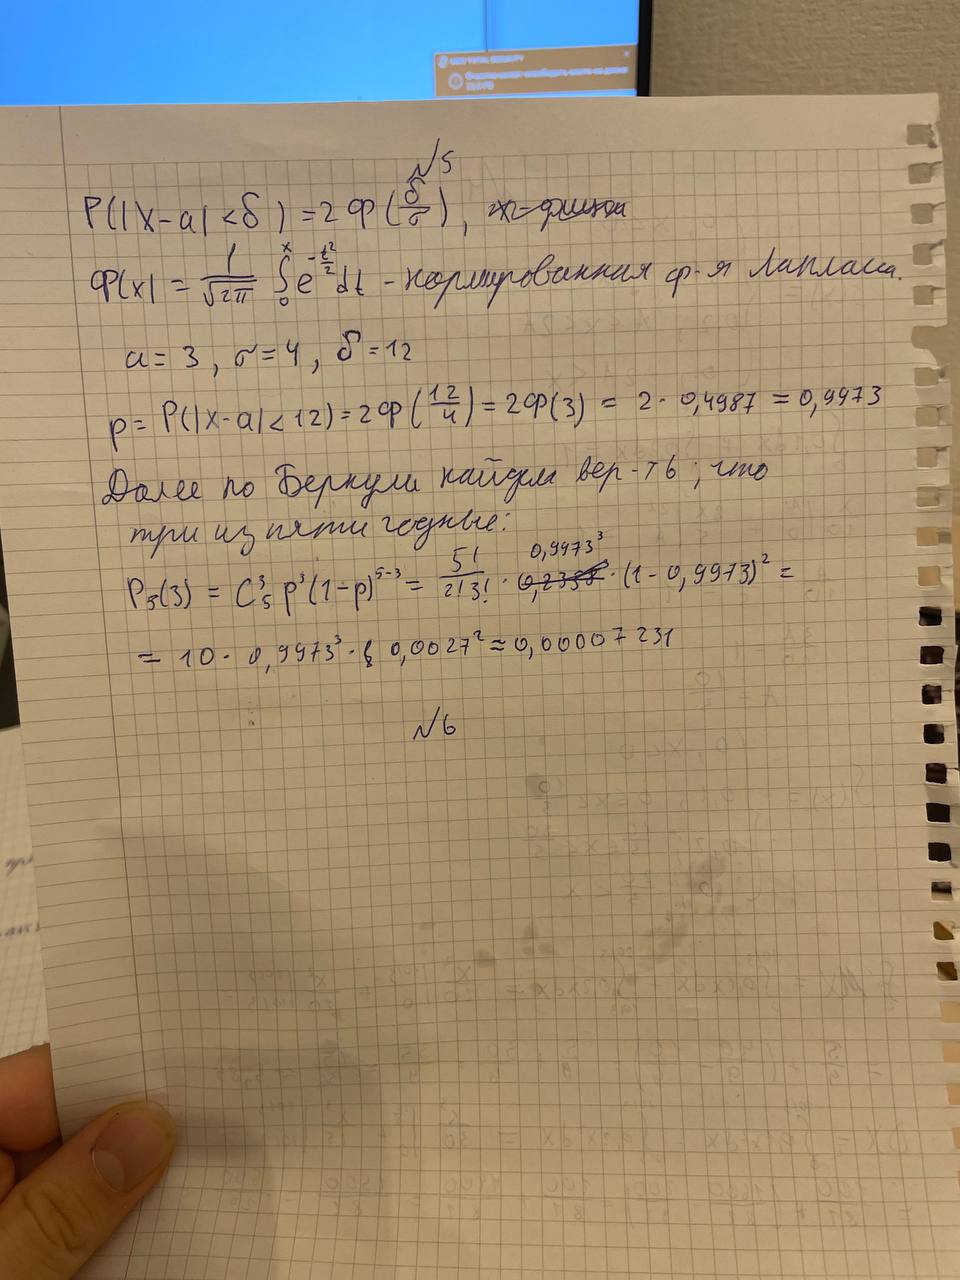 №5
P(|X-a|<δ)=2Ф(δ/σ),
Ф(x) = 1/√2π ∫₀ˣ e^(-t²/2) dt - нормированная ф-я Лапласа.
a=3, σ=4, δ=12
p= P(|X-a|<12)=2Ф(12/4)=2Ф(3) = 2·0,4987=0,9973
Далее по Бернули найдем вер-ть, что
три из пяти годные:
P₅(3) = C₅³ p³(1-p)⁵⁻³= 5!/2!3! · 0,9973³ · (1-0,9973)² =
= 10· 0,9973³· 0,0027² ≈ 0,00007231
№6